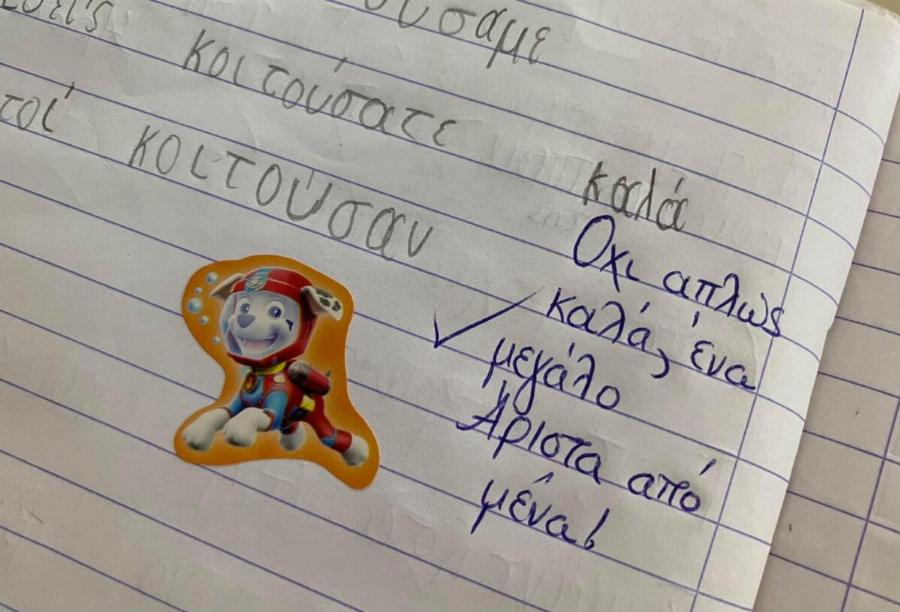 ουσαμε
κοιτούσατε
τοί κοιτούσαν
καλά
Όχι απλως
καλά, ένα
μεγάλο
Άριστα από
μένα!